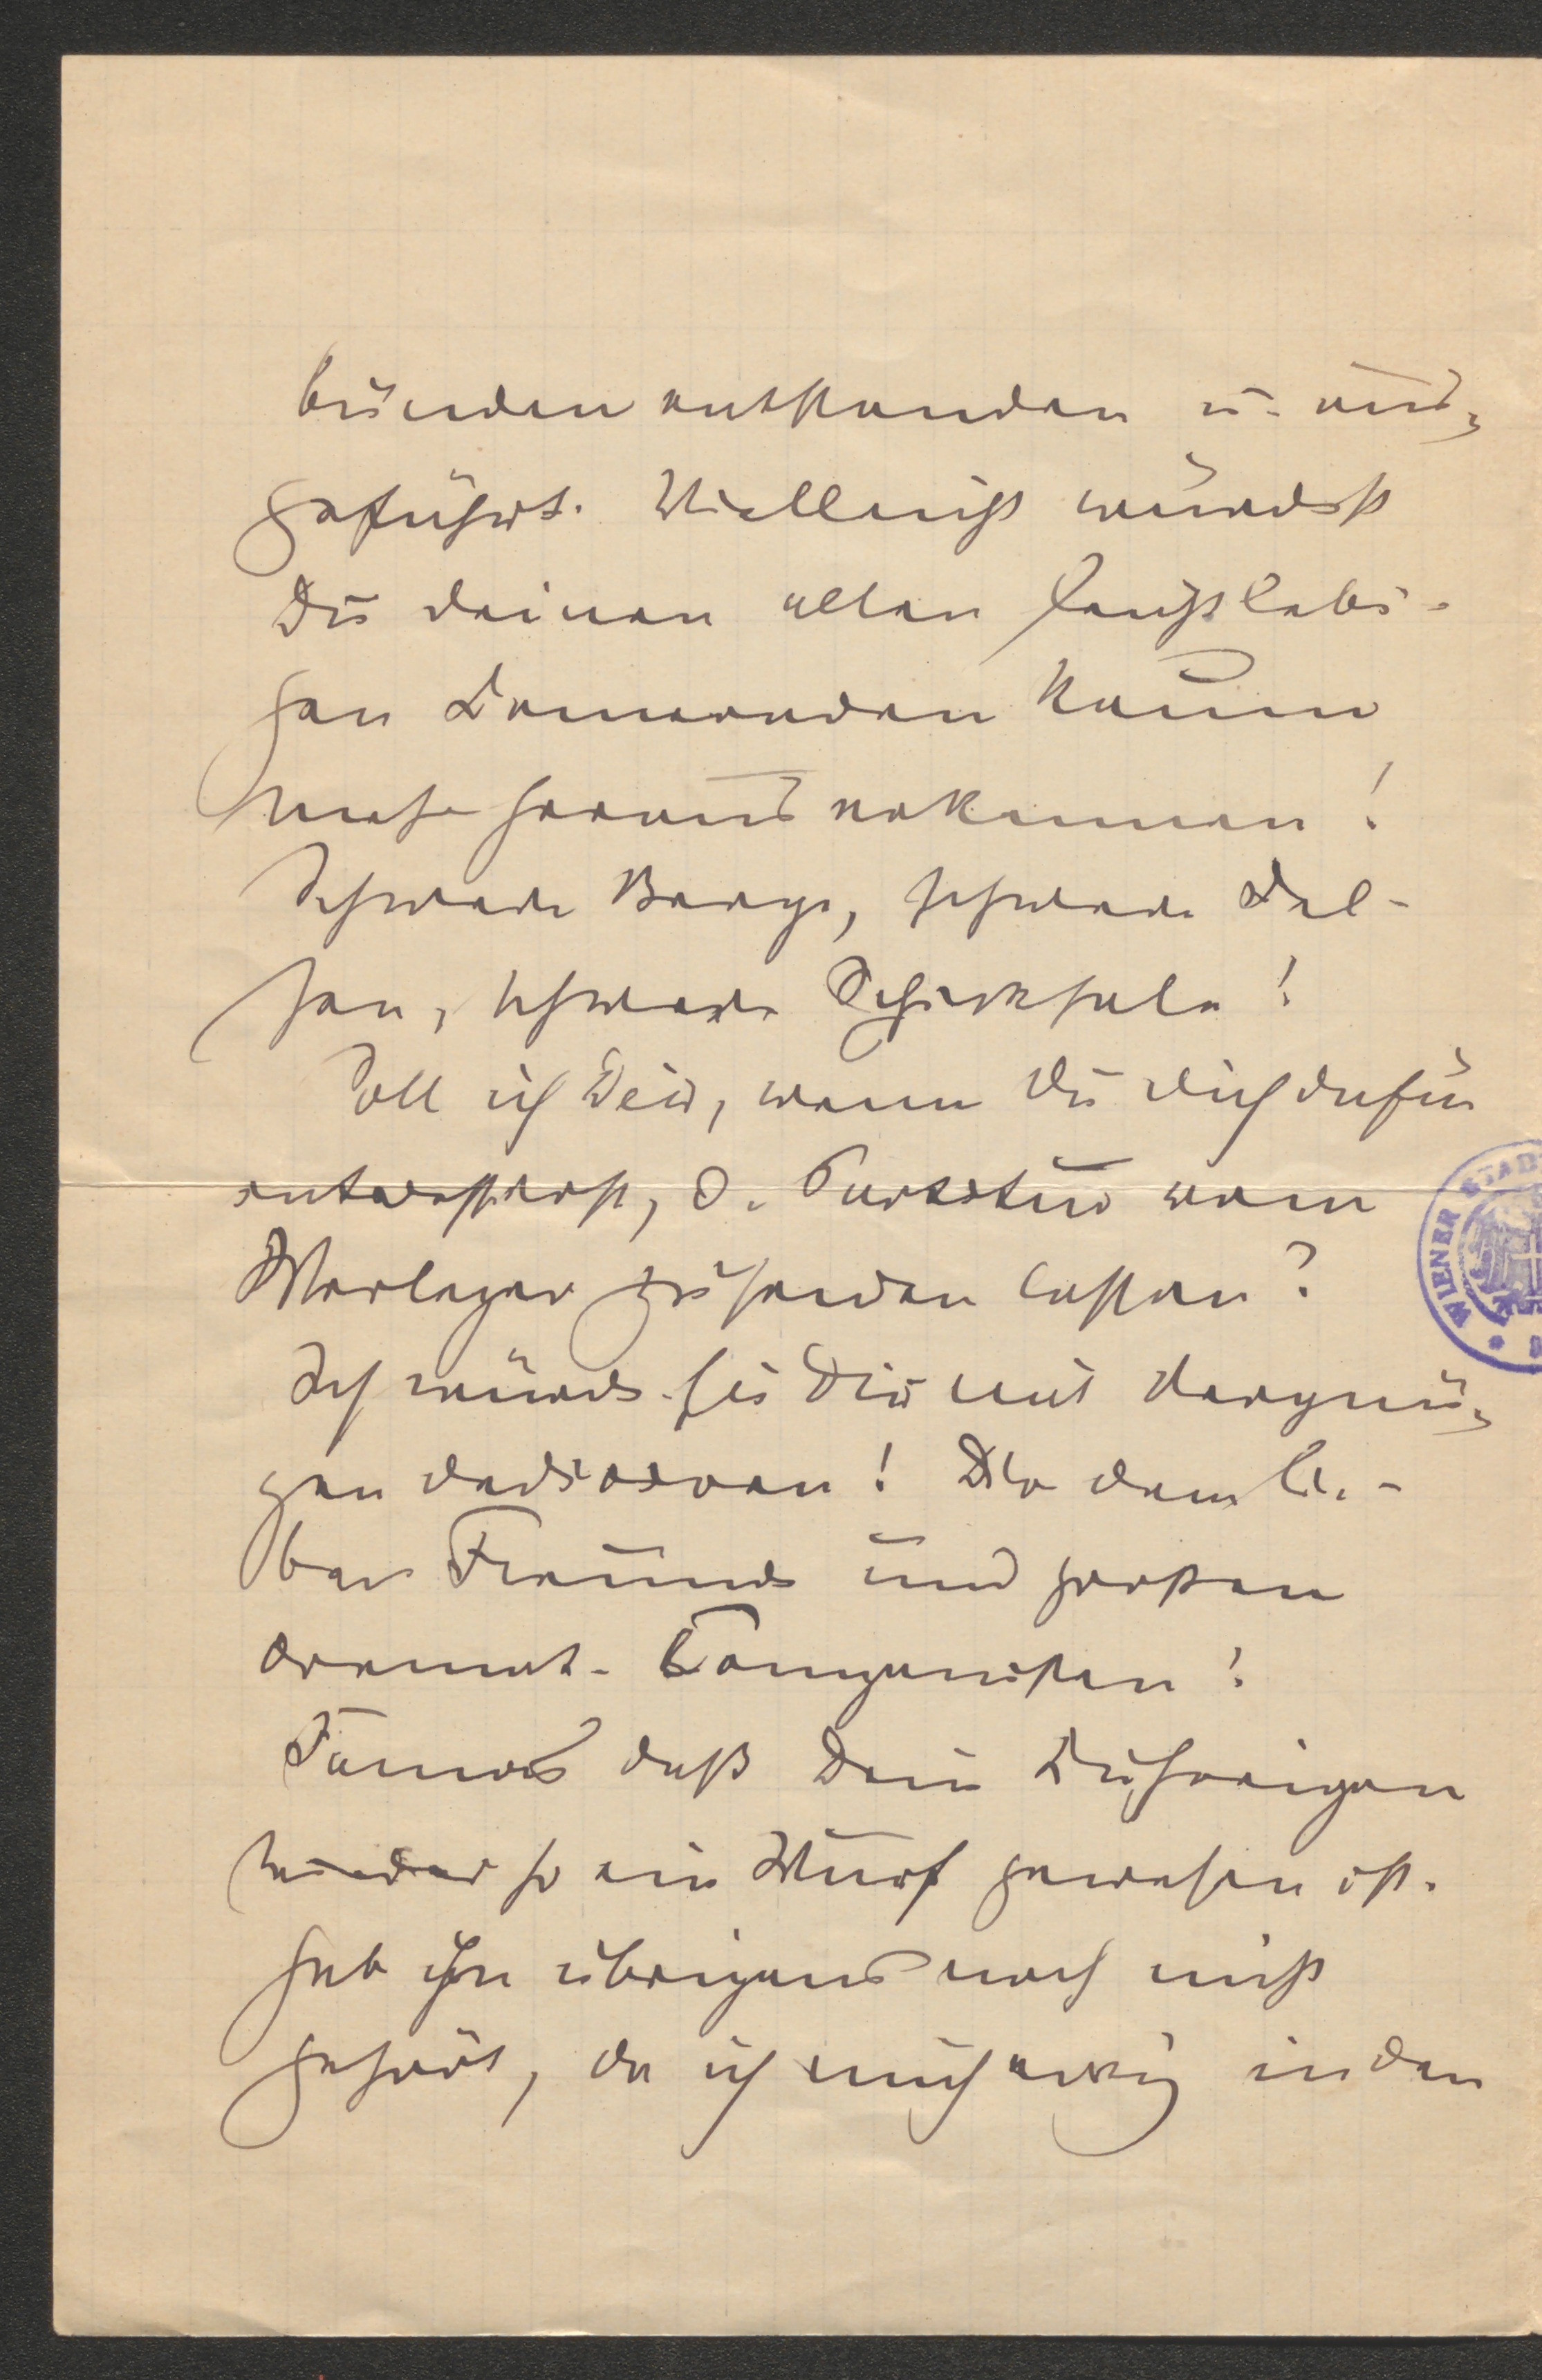 bünden entstanden u. aus-
geführt. Vielleicht würdest
Du deinen alten leichtlebi-
gen Kameraden kaum
mehr heraus erkennen!
Schwere Berge, schwere Fel-
sen, schwere Schicksale!
Soll ich Dir, wenn Du dich dafür
interessierst, d. Partitur vom
Verleger zusenden lassen?
Ich würde sie Dir mit Vergnü-
gen dedicieren! Dir dem lie-
ben Freunde und großen
dramat. Componisten!
Famos daß Dein Kuhreigen
wieder so ein Wurf gewesen ist.
Hab ihn übrigens noch nicht
gehört, da ich mich ewig in den
WIENER STAD